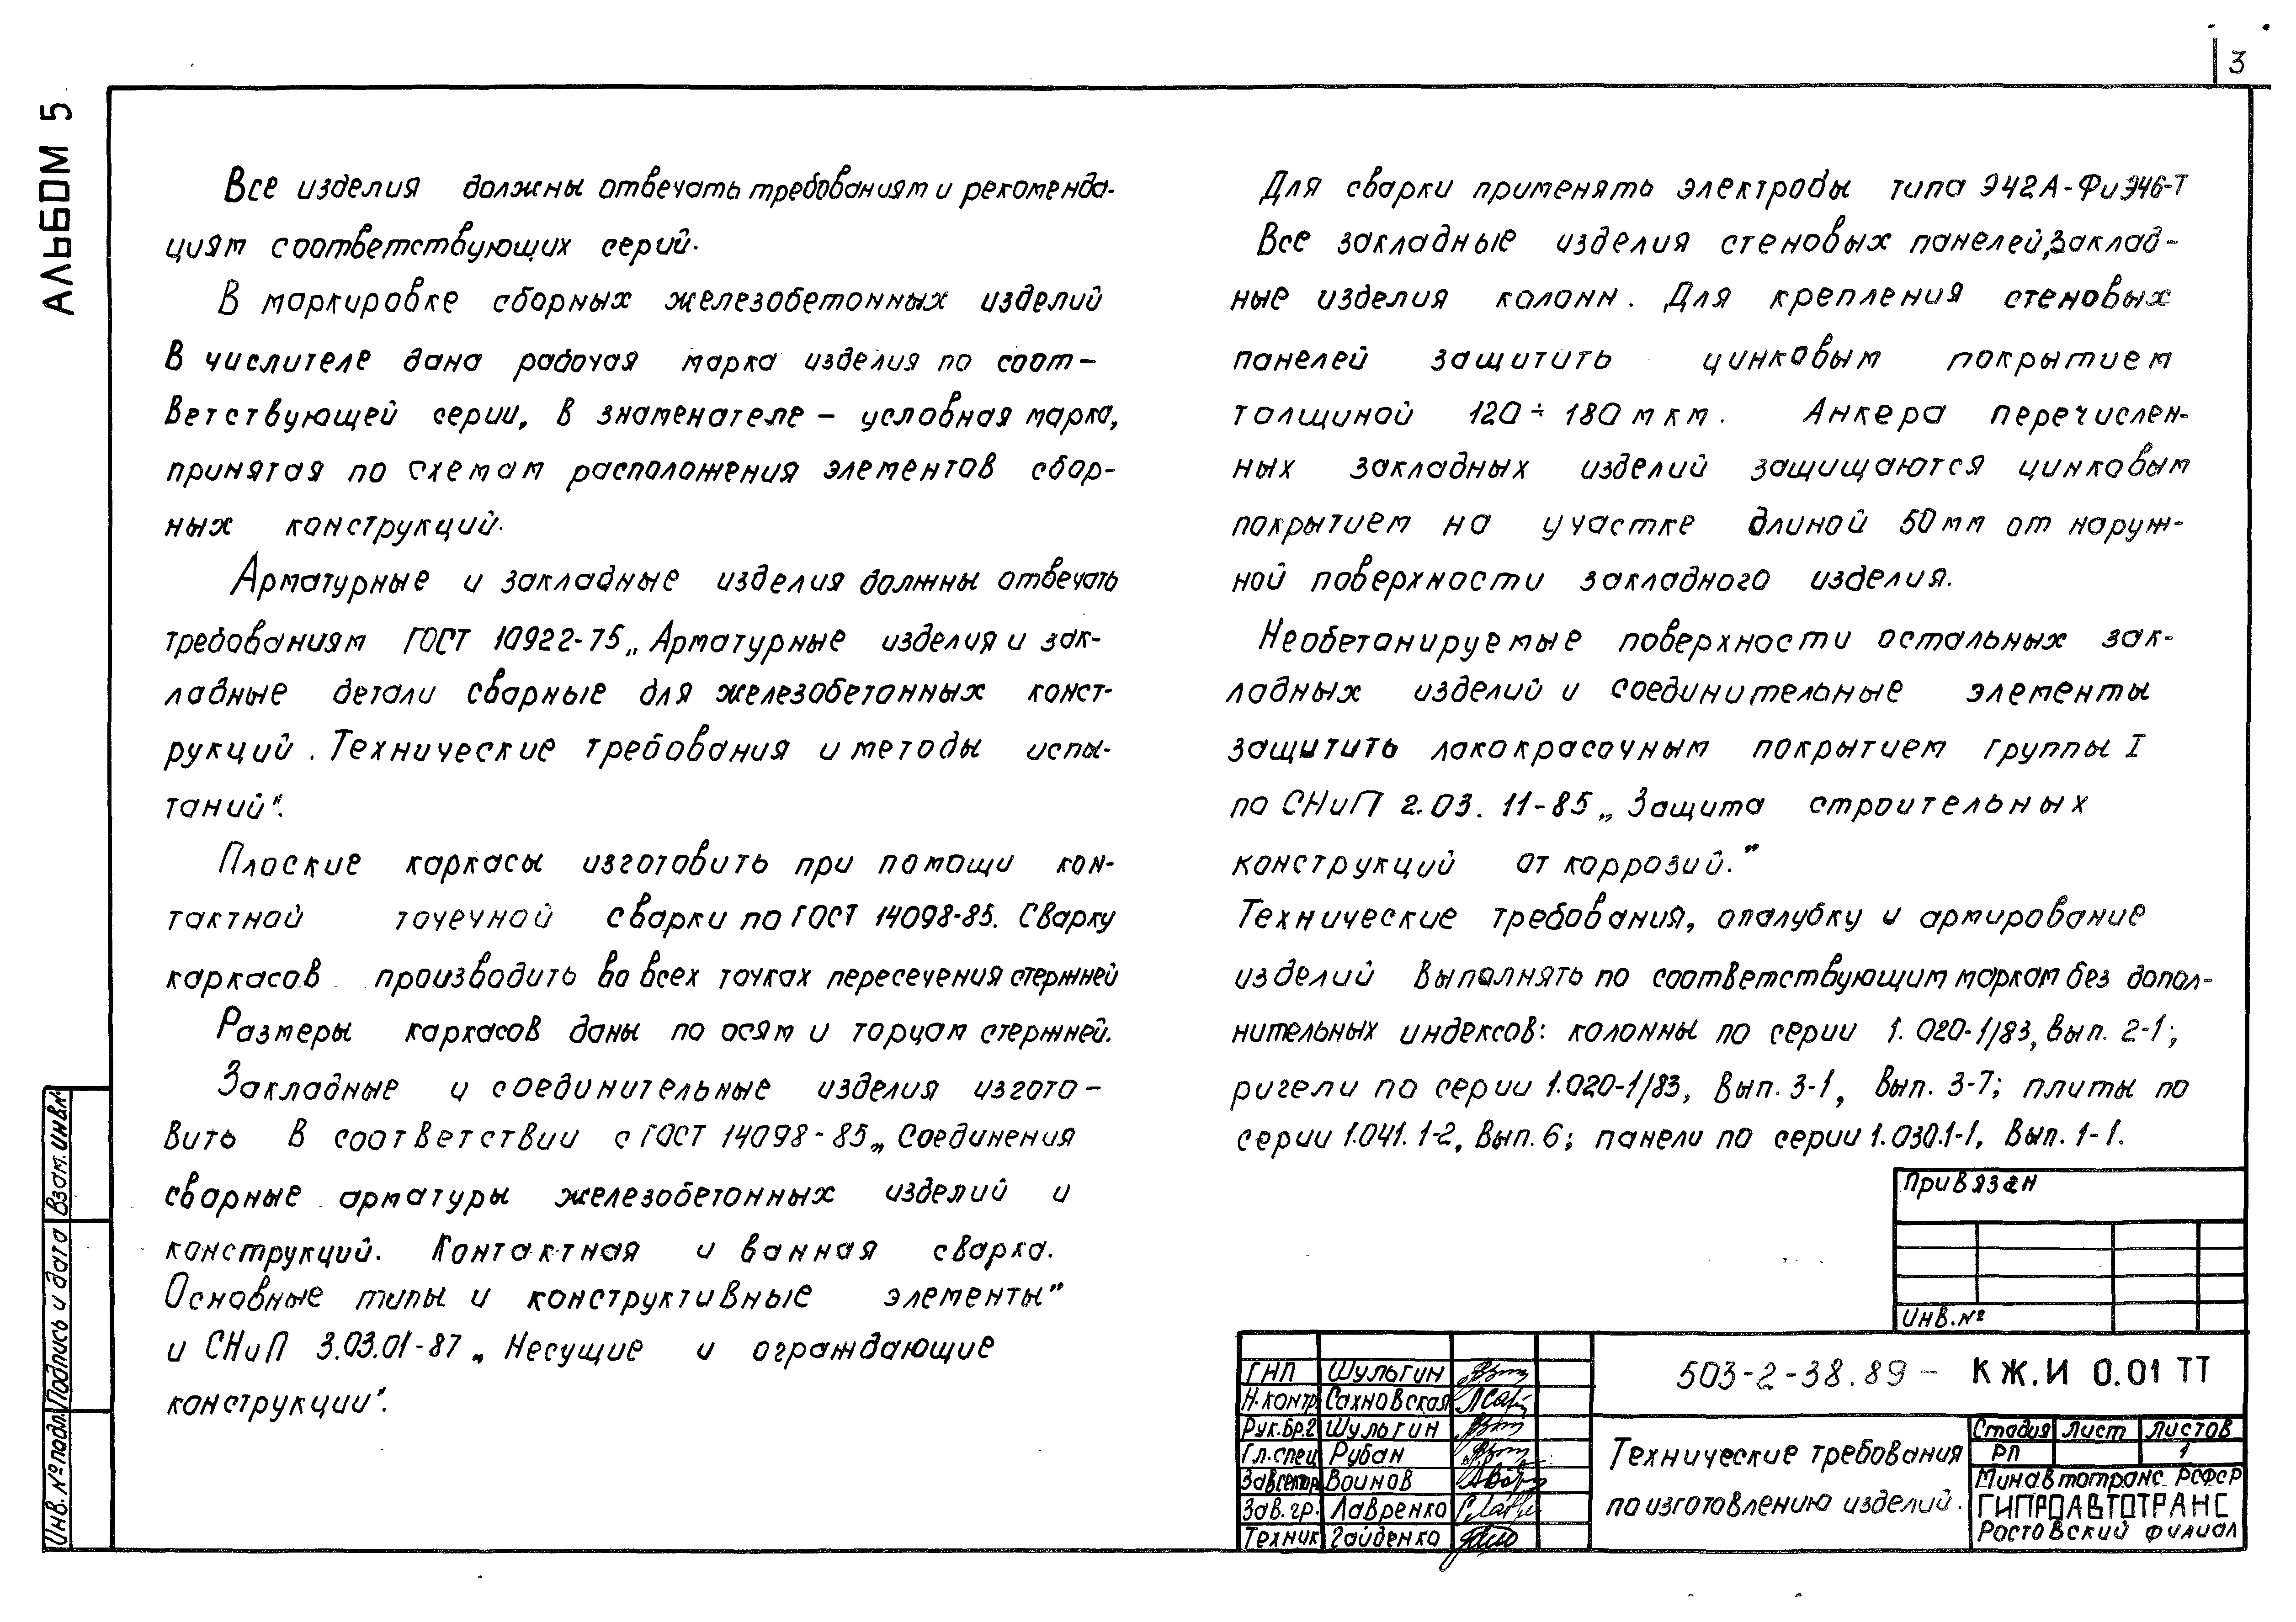 3
АЛЬБОМ 5
Все изделия должны отвечать требованиям и рекоменда-
циям соответствующих серий.
В маркировке сборных железобетонных изделий
в числителе дана рабочая марка изделия по соот-
ветствующей серии, в знаменателе – условная марка,
принятая по схемам расположения элементов сбор-
ных конструкций.
Арматурные и закладные изделия должны отвечать
требованиям ГОСТ 10922-75 „Арматурные изделия и зак-
ладные детали сварные для железобетонных конст-
рукций. Технические требования и методы испы-
таний".
Плоские каркасы изготовить при помощи кон-
тактной точечной сварки по ГОСТ 14098-85. Сварку
каркасов производить во всех точках пересечения стержней
Размеры каркасов даны по осям и торцам стержней.
Закладные и соединительные изделия изгото-
вить в соответствии с ГОСТ 14098-85 „Соединения
сварные арматуры железобетонных изделий и
конструкций. Контактная и ванная сварка.
Основные типы и конструктивные элементы"
и СНиП 3.03.01-87 „Несущие и ограждающие
конструкции".
Для сварки применять электроды типа Э42А-Ф и Э46-Т
Все закладные изделия стеновых панелей, заклад-
ные изделия колонн. Для крепления стеновых
панелей защитить цинковым покрытием
толщиной 120÷180 мкм. Анкера перечислен-
ных закладных изделий защищаются цинковым
покрытием на участке длиной 50 мм от наруж-
ной поверхности закладного изделия.
Необетанируемые поверхности остальных зак-
ладных изделий и соединительные элементы
защитить лакокрасочным покрытием группы I
по СНиП 2.03.11-85 „Защита строительных
конструкций от коррозий."
Технические требования, опалубку и армирование
изделий выполнять по соответствующим маркам без допол-
нительных индексов: колонны по серии 1.020-1/83, вып. 2-1;
ригели по серии 1.020-1/83, вып. 3-1, вып. 3-7; плиты по
серии 1.041.1-2, вып. 6; панели по серии 1.030.1-1, вып. 1-1.
Привязан
Инв. №
ГНП Шульгин
Н.контр Сахновская
Рук.бр.2 Шульгин
Гл.спец Рубан
Зав.сектор Воинов
Зав. гр. Лавренко
Техник Гайденко
503-2-38.89 - КЖ.И 0.01 ТТ
Технические требования
по изготовлению изделий.
Стадия Лист Листов
РП 1
Минавтотранс РСФСР
ГИПРОАВТОТРАНС
Ростовский филиал
Инв. № подл. Подпись и дата Взам. инв. №